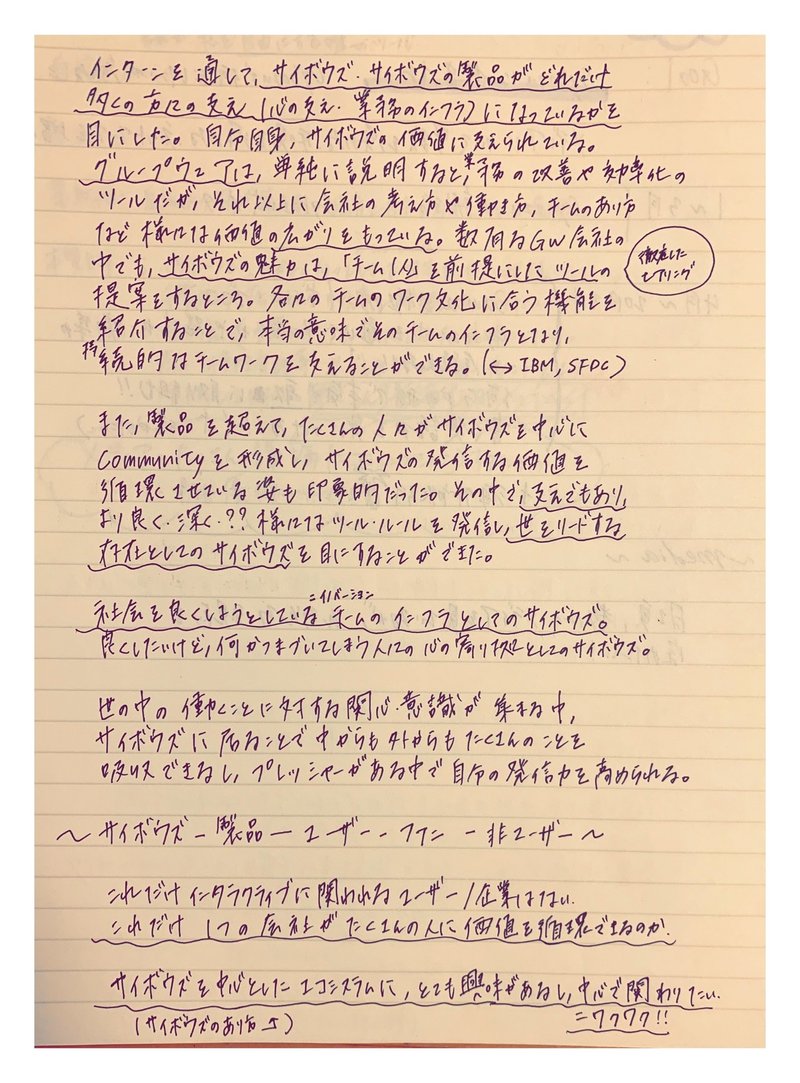 インターンを通して、サイボウズ・サイボウズの製品がどれだけ
多くの方々の支え(心の支え・業務のインフラ)になっているかを
目にした。自分自身、サイボウズの価値に支えられている。
グループウェアは、単純に説明すると、業務の改善や効率化の
ツールだが、それ以上に会社の考え方や働き方、チームのあり方
など様々な価値の広がりをもっている。数有るGW会社の
中でも、サイボウズの魅力は、「チーム(人)」を前提にしたツールの
徹底した
ヒアリング
提案をするところ。各々のチームのワーク文化に合う機能を
紹介することで、本当の意味でそのチームのインフラとなり、
持続的なチームワークを支えることができる。(↔ IBM, SFDC)
また、製品を超えて、たくさんの人々がサイボウズを中心に
Communityを形成し、サイボウズの発信する価値を
循環させている姿も印象的だった。その中で、支えでもあり、
より良く・深く・?? 様々なツール・ルールを発信し、世をリードする
存在としてのサイボウズを目にすることができた。
=イノベーション
社会を良くしようとしているチームのインフラとしてのサイボウズ。
良くしたいけど、何かつまづいてしまう人々の心の寄り拠としてのサイボウズ。
世の中の働くことに対する関心・意識が集まる中、
サイボウズに居ることで中からも外からもたくさんのことを
吸収できるし、プレッシャーがある中で自分の発信力を高められる。
〜サイボウズ − 製品 − ユーザー − ファン − 非ユーザー〜
これだけインタラクティブに関われるユーザー/企業はない.
これだけ1つの会社がたくさんの人に価値を循環できるのか.
サイボウズを中心としたエコシステムに、とても興味があるし、中心で関わりたい.
(サイボウズのあり方↑)
=ワクワク!!